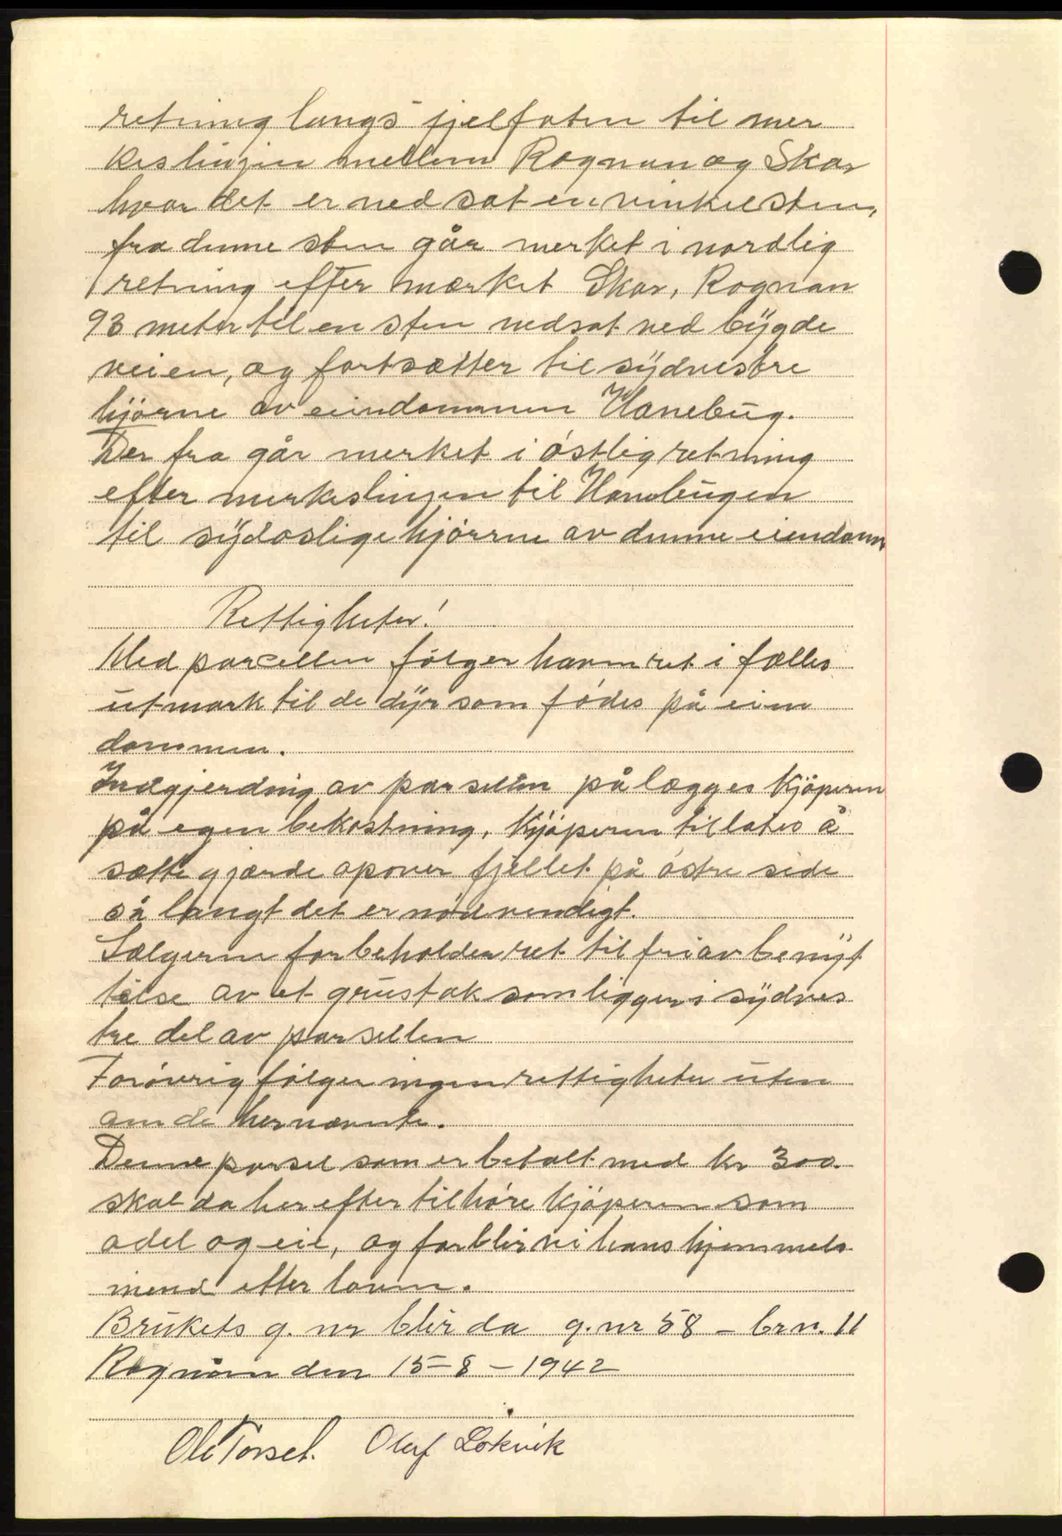 retning langs fjelfoten til mer
keslinjen mellem Rognan og Skar
hvor det er nedsat en vinkelsten,
fra denne sten går merket i nordlig
retning efter mærket Skar, Rognan
93 meter til en sten nedsat ved bygde
veien, og fortsætter til sydvestre
hjörne av eiendommen Hanebug.
Der fra går merket i östlig retning
efter merkeslinjen til Hanebugen
til sydoslige hjörrne av denne eiendom
Rettigheter!
Med parcellen fölger havnret i fælles
utmark til de dyr som födes på eien
dommen.
Indgjerdnig av parsellen pålægges kjöperen
på egen bekostning, kjöperen tillates å
sætte gjærde opover fjellet på östre side
så langt det er nödvendigt.
Sælgerne forbeholder ret til fri av benyt
telse av et grustak som ligger i sydves
tre del av parsellen
Foróvrig fölger ingen rettigheter uten
om de hernævnte.
Denne parsel som er betalt med kr 300.
skal da herefter tilhöre kjöperen som
odel og eie, og forblir vi hans hjemmels
mend efter loven.
Brukets g. nr blir da g. nr 58 – br n. 11
Rognan den 15–8–1942
Ole Torset. Oluf Lökvik